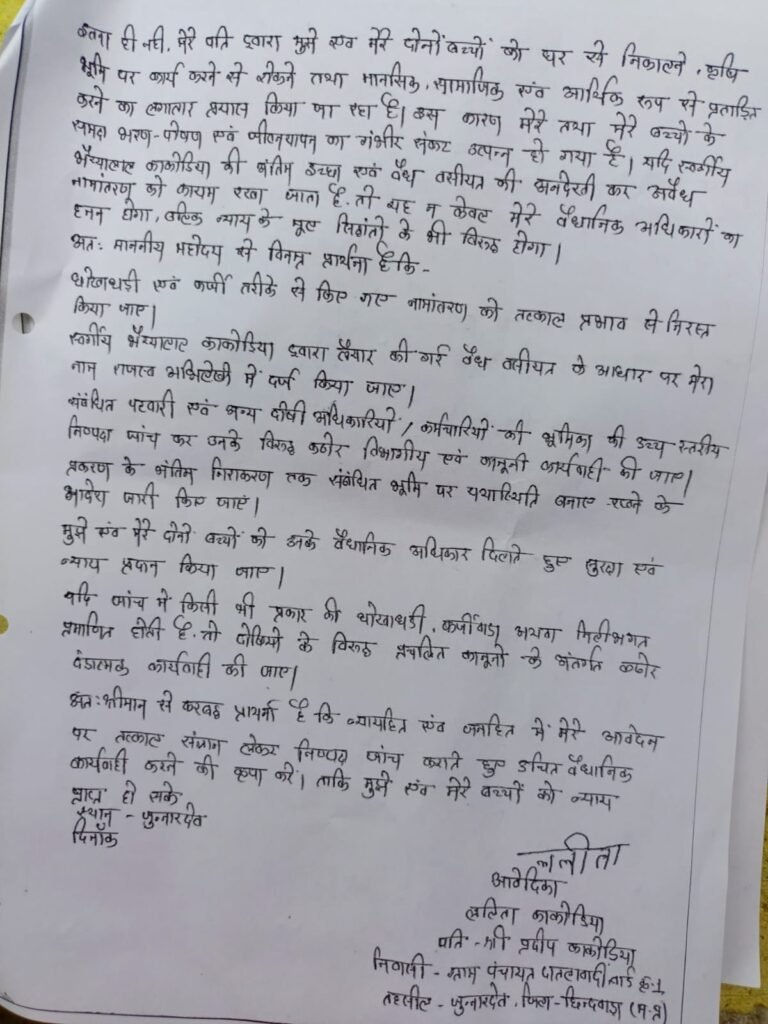 इतना ही नहीं, मेरे पति द्वारा मुझे एवं मेरे दोनों बच्चों को घर से निकालने, कृषि
भूमि पर कार्य करने से रोकने तथा मानसिक, सामाजिक एवं आर्थिक रूप से प्रताड़ित
करने का लगातार प्रयास किया जा रहा है। इस कारण मेरे तथा मेरे बच्चों के
समक्ष भरण-पोषण एवं जीवनयापन का गंभीर संकट उत्पन्न हो गया है। यदि स्वर्गीय
भैय्यालाल काकोडिया की अंतिम इच्छा एवं वैध वसीयत की अनदेखी कर अवैध
नामांतरण को कायम रखा जाता है, तो यह न केवल मेरे वैधानिक अधिकारों का
हनन होगा, बल्कि न्याय के मूल सिद्धांतों के भी विरुद्ध होगा।
अतः माननीय महोदय से विनम्र प्रार्थना है कि -
धोखाधड़ी एवं फर्जी तरीके से किए गए नामांतरण को तत्काल प्रभाव से निरस्त
किया जाए।
स्वर्गीय भैय्यालाल काकोडिया द्वारा तैयार की गई वैध वसीयत के आधार पर मेरा
नाम राजस्व अभिलेखों में दर्ज किया जाए।
संबंधित पटवारी एवं अन्य दोषी अधिकारियों/कर्मचारियों की भूमिका की उच्च स्तरीय
निष्पक्ष जांच कर उनके विरुद्ध कठोर विभागीय एवं कानूनी कार्यवाही की जाए।
प्रकरण के अंतिम निराकरण तक संबंधित भूमि पर यथास्थिति बनाए रखने के
आदेश जारी किए जाएं।
मुझे एवं मेरे दोनों बच्चों को उनके वैधानिक अधिकार दिलाते हुए सुरक्षा एवं
न्याय प्रदान किया जाए।
यदि जांच में किसी भी प्रकार की धोखाधड़ी, फर्जीवाड़ा अथवा मिलीभगत
प्रमाणित होती है, तो दोषियों के विरुद्ध प्रचलित कानूनों के अंतर्गत कठोर
दंडात्मक कार्यवाही की जाए।
अतः श्रीमान से करबद्ध प्रार्थना है कि न्यायहित एवं जनहित में मेरे आवेदन
पर तत्काल संज्ञान लेकर निष्पक्ष जांच कराते हुए उचित वैधानिक
कार्यवाही करने की कृपा करें। ताकि मुझे एवं मेरे बच्चों को न्याय
प्राप्त हो सके
स्थान - जुन्नारदेव
दिनाँक
ललीता
आवेदिका
ललिता काकोडिया
पति - श्री प्रदीप काकोडिया
निवासी - ग्राम पंचायत दातलावादी वार्ड क्र.1
तहसील - जुन्नारदेव, जिला - छिन्दवाड़ा (म.प्र)